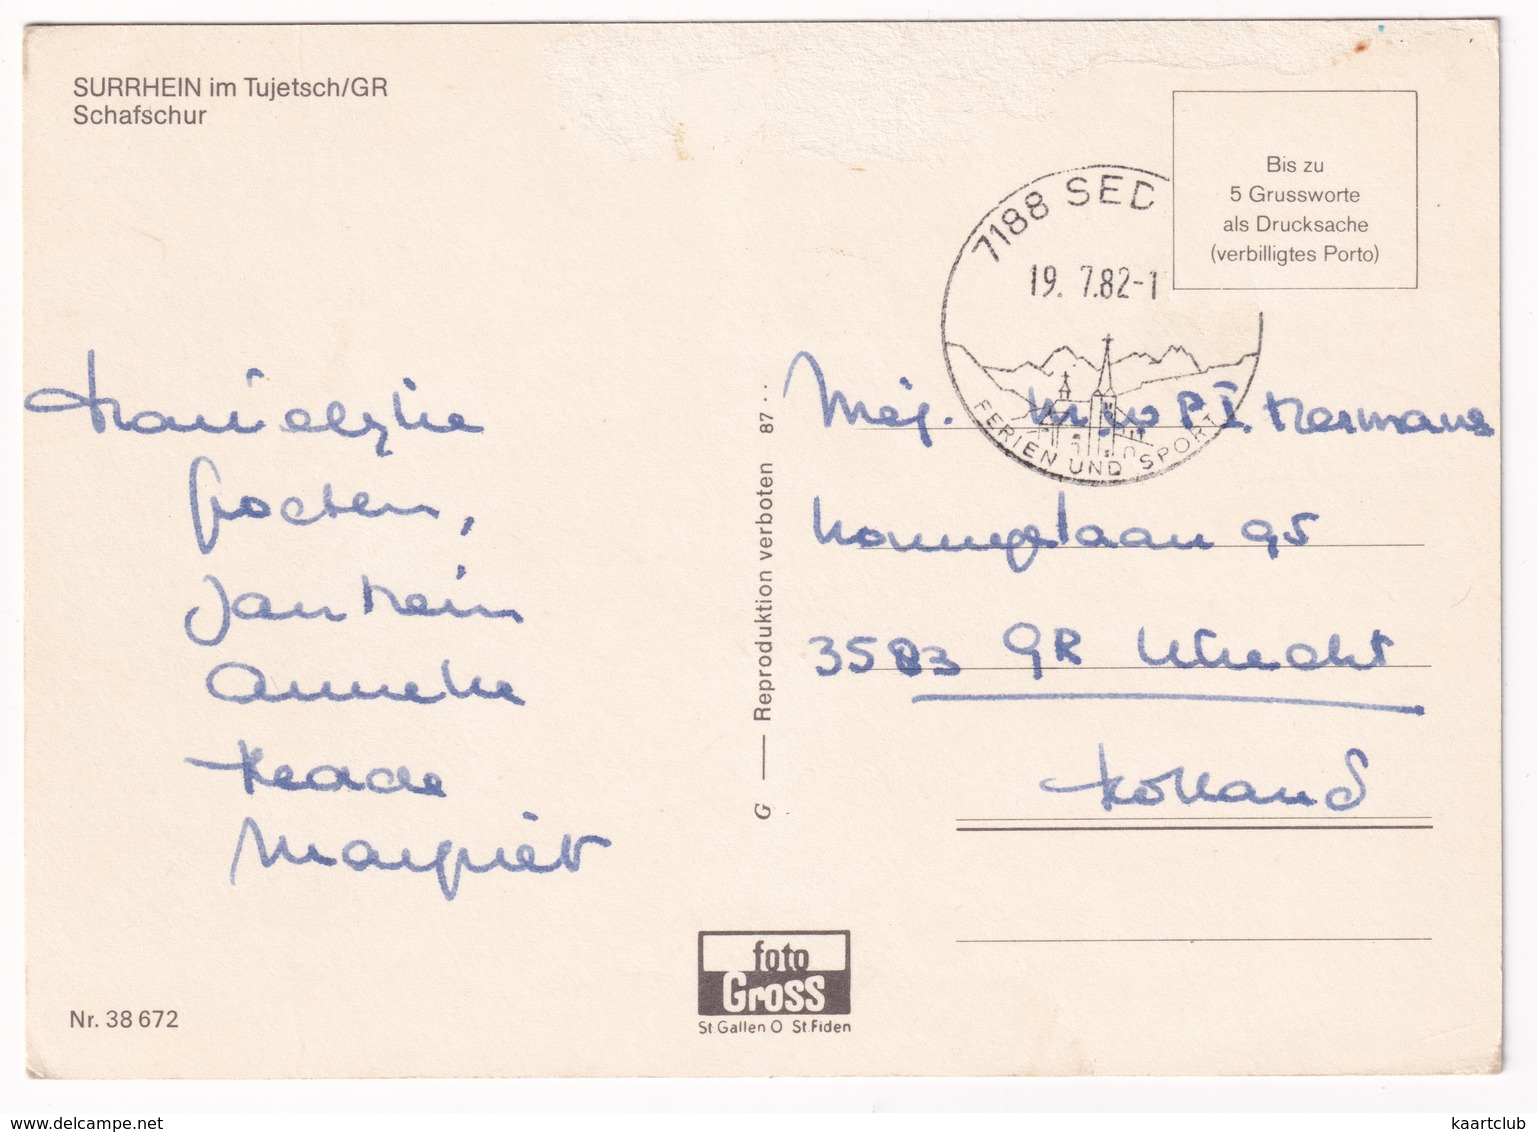 SURRHEIN im Tujetsch/GR
Schafschur
Bis zu
5 Grussworte
als Drucksache
(verbilligtes Porto)
7188 SED
19. 7.82-1
FERIEN UND SPORT
Hartelijke
Groeten,
Jan Hein
Anneke
Margriet
Mej.
Koningslaan 95
3583 GR Utrecht
Holland
G — Reproduktion verboten 87 ··
foto
Gross
St.Gallen O St.Fiden
Nr. 38 672
www.delcampe.net
kaartclub